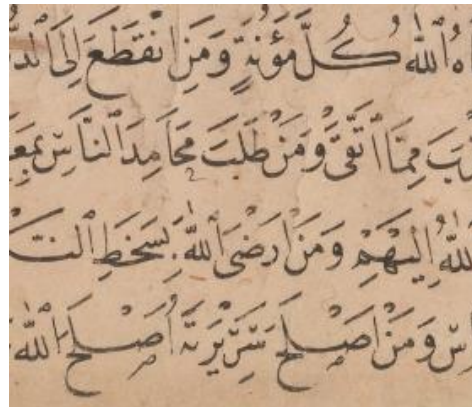 اهُ ٱللَّهُ كُلَّ مَؤُنَةٍ وَمَنِ ٱنْقَطَعَ إِلَى ٱلدُّ
رَبَ مِمَّا ٱتَّقَى وَمَنْ طَلَبَ مَحَامِدَ ٱلنَّاسِ بِمَعَ
ٱللَّهُ إِلَيْهِمْ وَمَنْ أَرْضَى ٱللَّهَ بِسَخَطِ ٱلنَّا
اسِ وَمَنْ أَصْلَحَ سَرِيْرَتَهُ أَصْلَحَ ٱللَّهُ